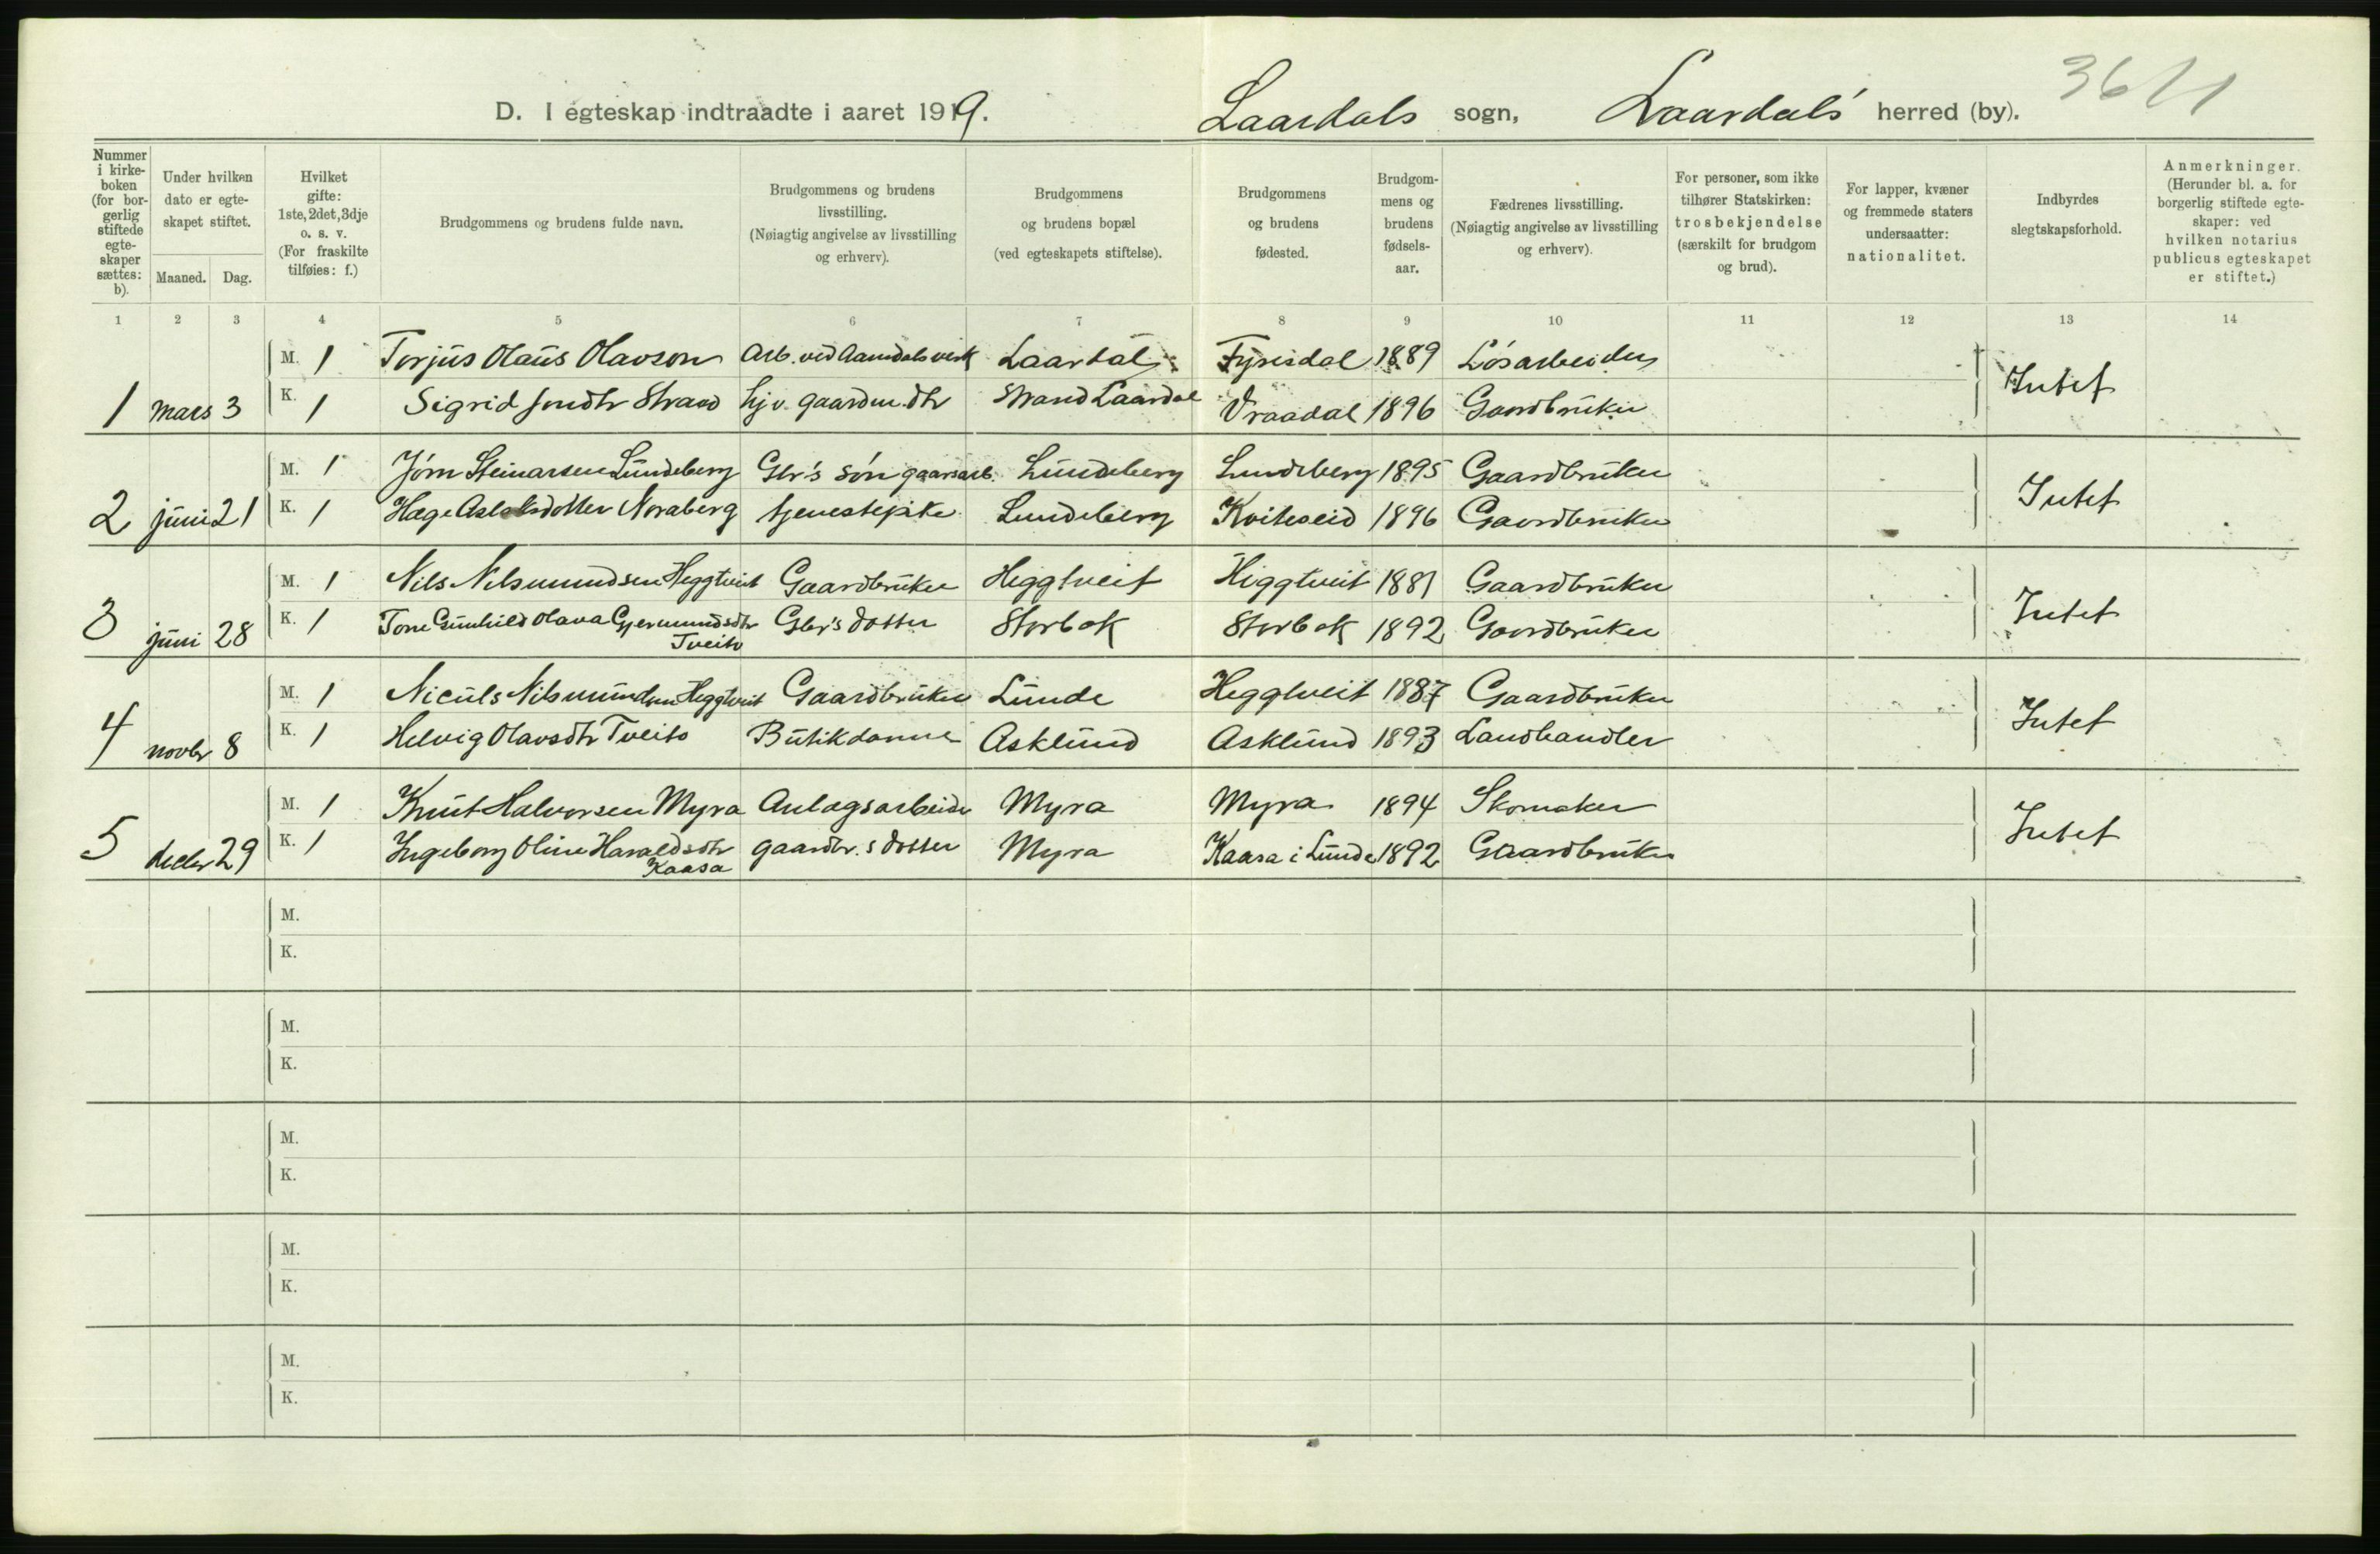 D. I egteskap indtraadte i aaret 1919. Laardals sogn, Laardals herred (by). 3611
Nummer i kirkeboken (for borgerlig stiftede egteskaper sættes: b).
Under hvilken dato er egteskapet stiftet.
Maaned. Dag.
Hvilket gifte: 1ste, 2det, 3dje o. s. v. (For fraskilte tilføies: f.)
Brudgommens og brudens fulde navn.
Brudgommens og brudens livsstilling. (Nøiagtig angivelse av livsstilling og erhverv).
Brudgommens og brudens bopæl (ved egteskapets stiftelse).
Brudgommens og brudens fødested.
Brudgommens og brudens fødselsaar.
Fædrenes livsstilling. (Nøiagtig angivelse av livsstilling og erhverv).
For personer, som ikke tilhører Statskirken: trosbekjendelse (særskilt for brudgom og brud).
For lapper, kvæner og fremmede staters undersaatter: nationalitet.
Indbyrdes slegtskapsforhold.
Anmerkninger. (Herunder bl. a. for borgerlig stiftede egteskaper: ved hvilken notarius publicus egteskapet er stiftet.)
1 2 3 4 5 6 7 8 9 10 11 12 13 14
M. 1 Torjus Olaus Olavson Arb. ved Aamdals verk Laardal Fyresdal 1889 Løsarbeider
1 mars 3 K. 1 Sigrid Jondtr Strand hj.v. gaardm. dtr Strand Laardal Vraadal 1896 Gaardbruker Intet
M. 1 Jørn Steinarsen Lundeberg Gbr's søn gaardsarb. Lundeberg Lundeberg 1895 Gaardbruker
2 juni 21 K. 1 Hæge Aslaksdotter Noraberg tjenestejente Lundeberg Kviteseid 1896 Gaardbruker Intet
M. 1 Nils Nilsmundsen Heggtveit Gaardbruker Heggtveit Heggtveit 1881 Gaardbruker
3 juni 28 K. 1 Tone Gunhild Olava Gjermundsdtr Tveito Gbr's dotter Storbok Storbok 1892 Gaardbruker Intet
M. 1 Niculs Nilsmundsen Heggtveit Gaardbruker Lunde Heggtveit 1887 Gaardbruker
4 novbr 8 K. 1 Helvig Olavsdtr Tveito Butikdame Asklund Asklund 1893 Landhandler Intet
M. 1 Knut Halvorsen Myra Anlægsarbeider Myra Myra 1894 Skomaker
5 decbr 29 K. 1 Ingeborg Oline Haraldsdtr Kaasa gaardbr.s dotter Myra Kaasa i Lunde 1892 Gaardbruker Intet
M.
K.
M.
K.
M.
K.
M.
K.
M.
K.